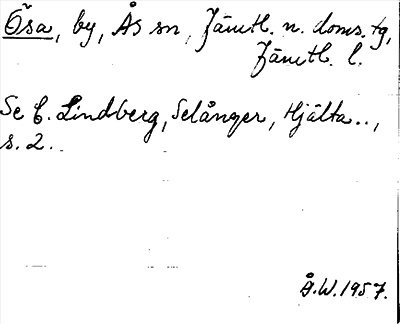 Ösa, by, Ås sn, Jämtl. n. doms. tg,
Jämtl. l.
Se C. Lindberg, Selånger, Hjälta..,
s. 2.
Å.W. 1957.